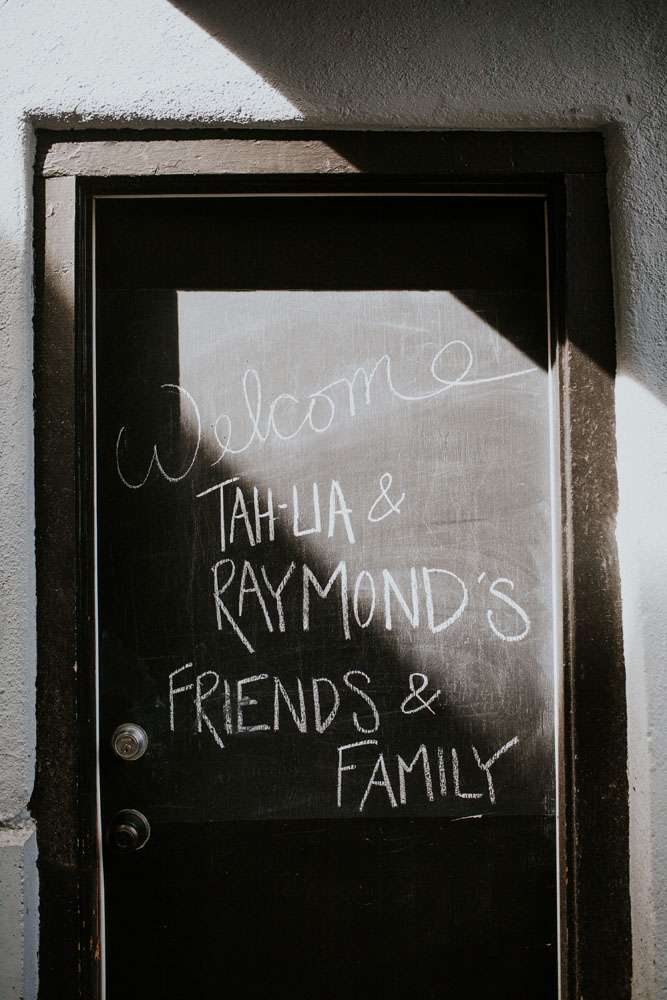 Welcome
TAH-LIA &
RAYMOND'S
FRIENDS &
FAMILY